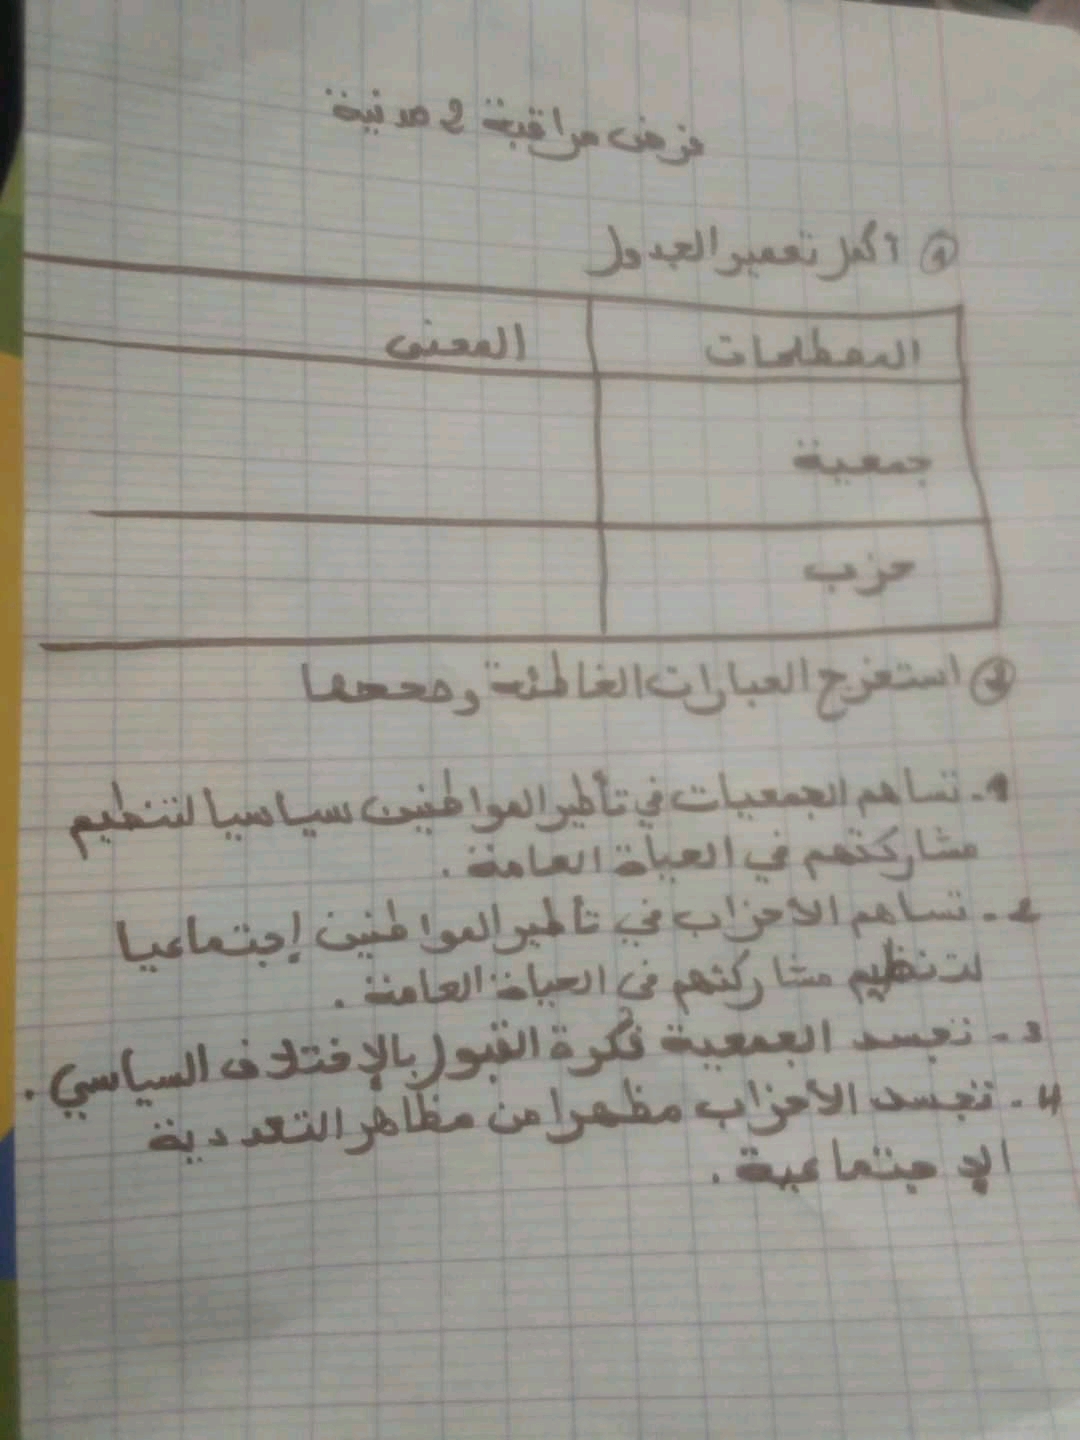 فرض مراقبة 2 مدنية
1 أكمل تعمير الجدول
المصطلحات المعنى
جمعية
حزب
2 استخرج العبارات الخاطئة وصححها
1- تساهم الجمعيات في تأطير المواطنين سياسيا لتنظيم
مشاركتهم في الحياة العامة .
2- تساهم الأحزاب في تأطير المواطنين إجتماعيا
لتنظيم مشاركتهم في الحياة العامة .
3- تجسد الجمعية فكرة القبول بالإختلاف السياسي .
4- تجسد الأحزاب مظهرا من مظاهر التعددية
الإجتماعية .